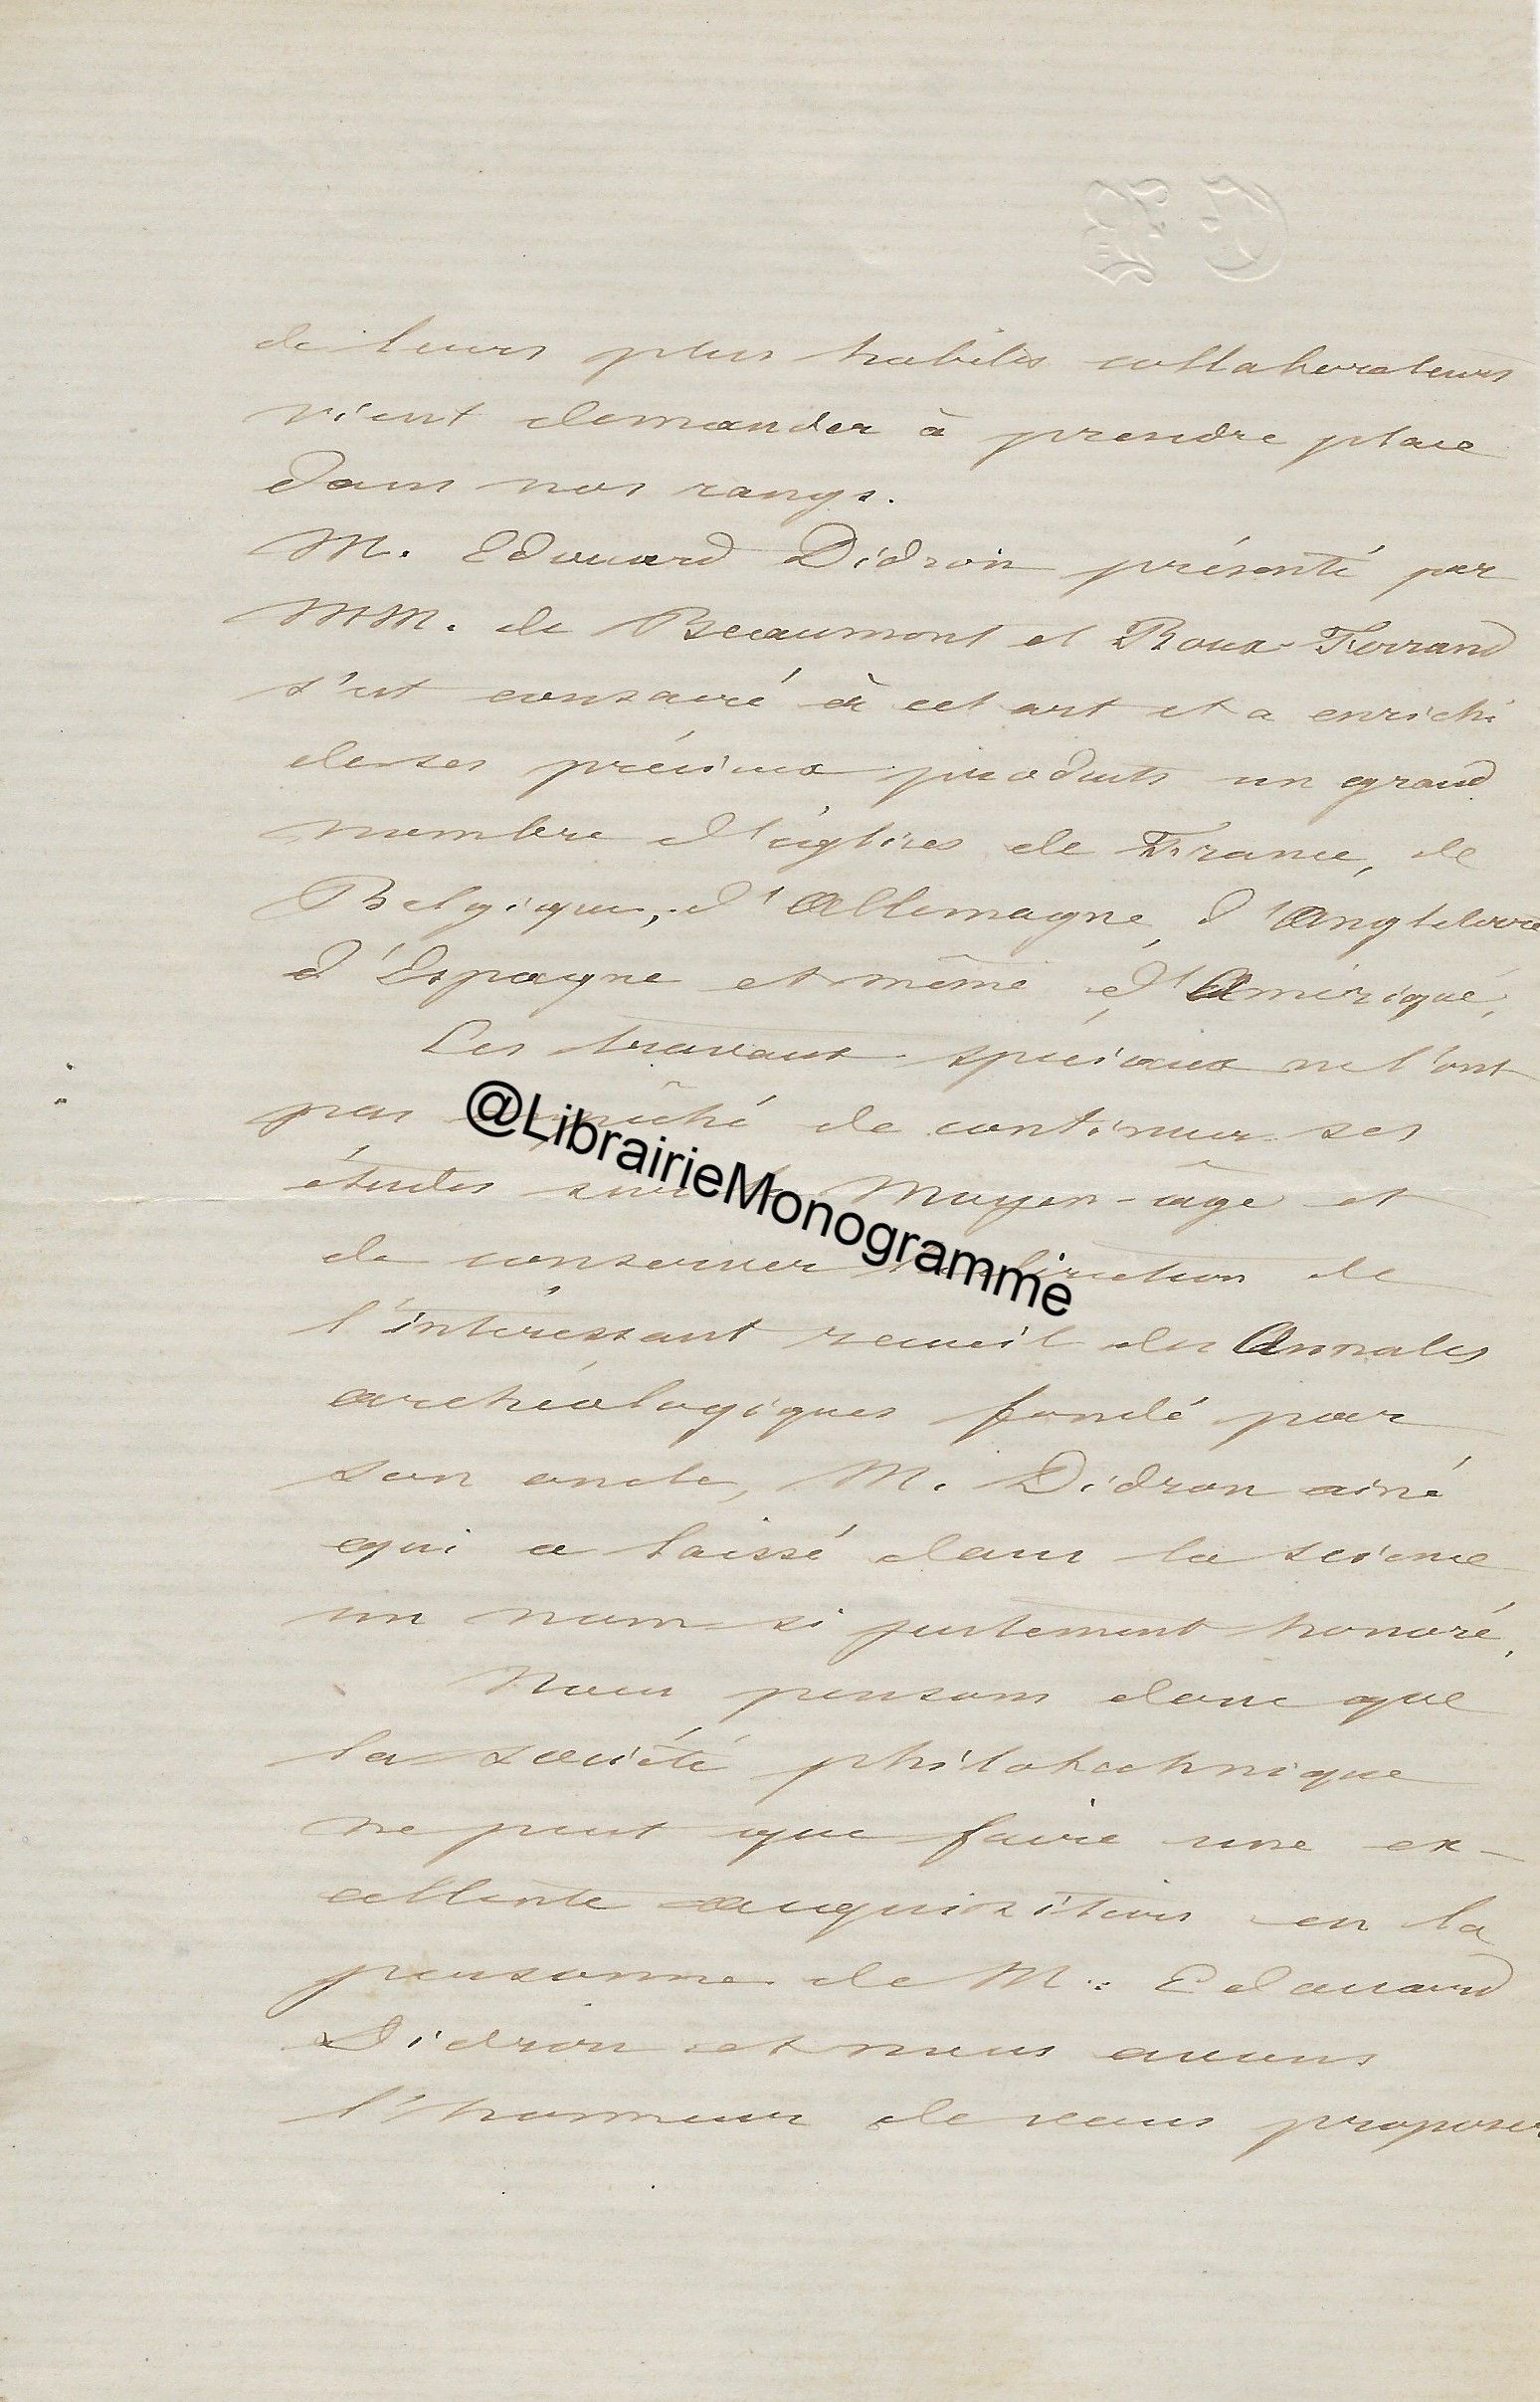 de leurs plus habiles collaborateurs
vient demander à prendre place
dans nos rangs.
M. Edouard Didron présenté par
MM. de Beaumont et Roux-Ferrand
s'est consacré à cet art et a enrichi
de ses précieux produits un grand
nombre d'églises de France, de
Belgique, d'Allemagne, d'Angleterre
d'Espagne et même d'Amérique.
Ces travaux spéciaux ne l'ont
pas empêché de continuer ses
études sur le Moyen-âge et
de conserver la direction de
l'intéressant recueil des Annales
archéologiques fondé par
son oncle, M. Didron ainé
qui a laissé dans la science
un nom si justement honoré.
Nous pensons donc que
la société philotechnique
ne peut que faire une ex-
cellente acquisition en la
personne de M. Edouard
Didron et nous avons
l'honneur de vous proposer
@LibrairieMonogramme